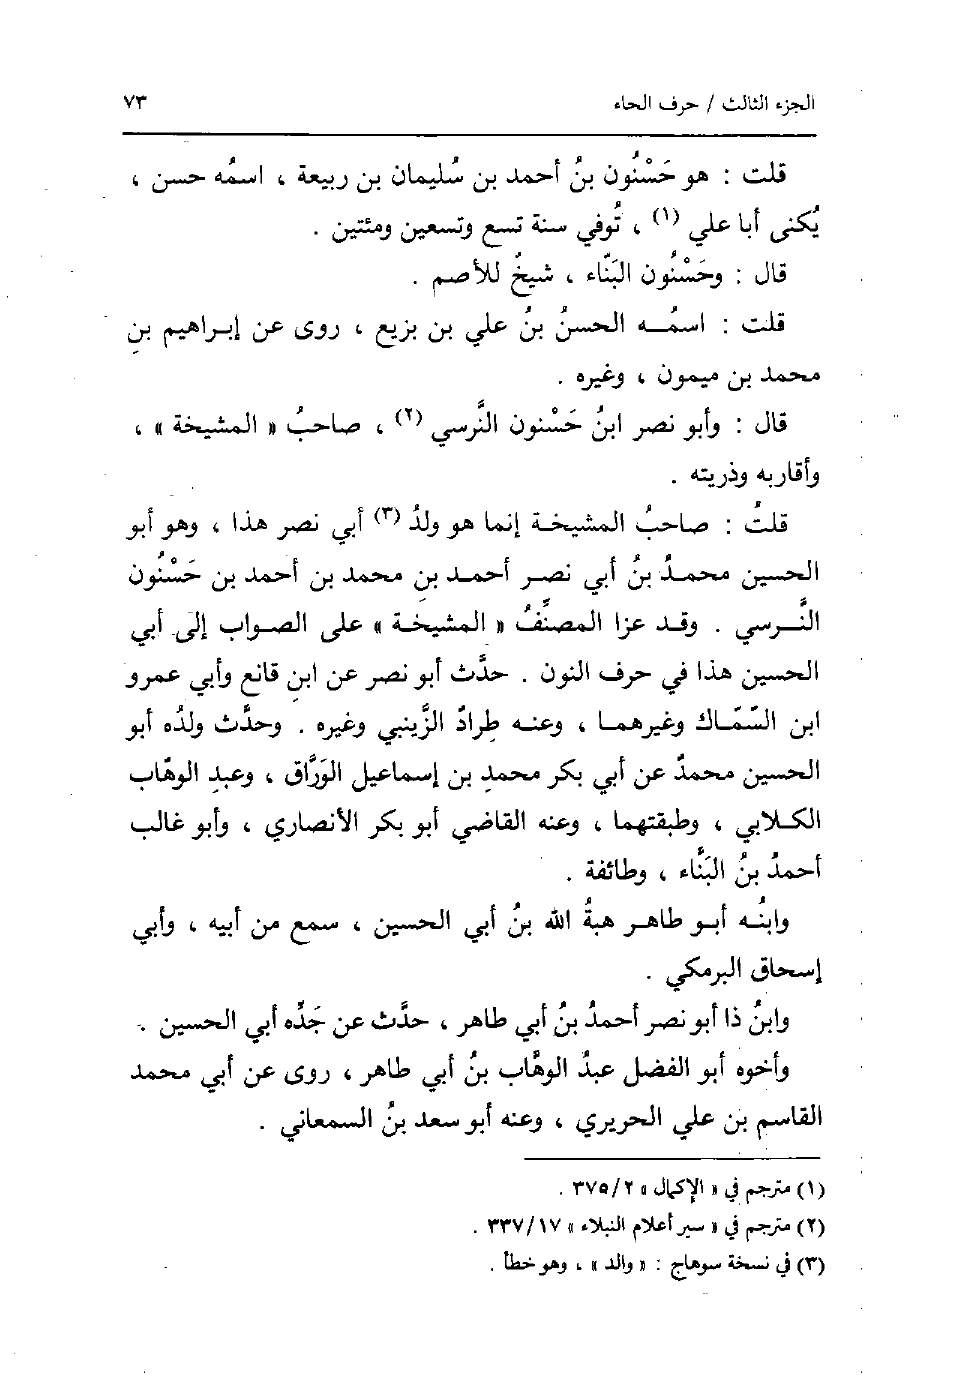 الجزء الثالث / حرف الحاء ٧٣
قلت : هو حَسْنُون بنُ أحمد بن سُليمان بن ربيعة ، اسمُه حسن ،
يُكنى أبا علي (١) ، تُوفي سنة تسع وتسعين ومئتين .
قال : وحَسْنُون البَنّاء ، شيخٌ للأصم .
قلت : اسمُه الحسنُ بنُ علي بن بزيع ، روى عن إبراهيم بنِ
محمد بن ميمون ، وغيره .
قال : وأبو نصر ابنُ حَسْنون النَّرسي (٢) ، صاحبُ « المشيخة » ،
وأقاربه وذريته .
قلتُ : صاحبُ المشيخة إنما هو ولدُ (٣) أبي نصر هذا ، وهو أبو
الحسين محمدُ بنُ أبي نصر أحمد بن محمد بن أحمد بن حَسْنُون
النَّرسي . وقد عزا المصنِّفُ « المشيخة » على الصواب إلى أبي
الحسين هذا في حرف النون . حدَّث أبو نصر عن ابن قانع وأبي عمرو
ابن السَّمَّاك وغيرهما ، وعنه طرادٌ الزَّينبي وغيره . وحدَّث ولدُه أبو
الحسين محمدٌ عن أبي بكر محمدِ بن إسماعيل الوَرَّاق ، وعبدِ الوهّاب
الكلابي ، وطبقتهما ، وعنه القاضي أبو بكر الأنصاري ، وأبو غالب
أحمدُ بنُ البَنَّاء ، وطائفة .
وابنُه أبو طاهر هبةُ الله بنُ أبي الحسين ، سمع من أبيه ، وأبي
إسحاق البرمكي .
وابنُ ذا أبو نصر أحمدُ بنُ أبي طاهر ، حدَّث عن جَدِّه أبي الحسين .
وأخوه أبو الفضل عبدُ الوهَّاب بنُ أبي طاهر ، روى عن أبي محمد
القاسم بن علي الحريري ، وعنه أبو سعد بنُ السمعاني .
(١) مترجم في « الإكمال » ٣٧٥/٢ .
(٢) مترجم في « سير أعلام النبلاء » ٣٣٧/١٧ .
(٣) في نسخة سوهاج : « والد » ، وهو خطأ .